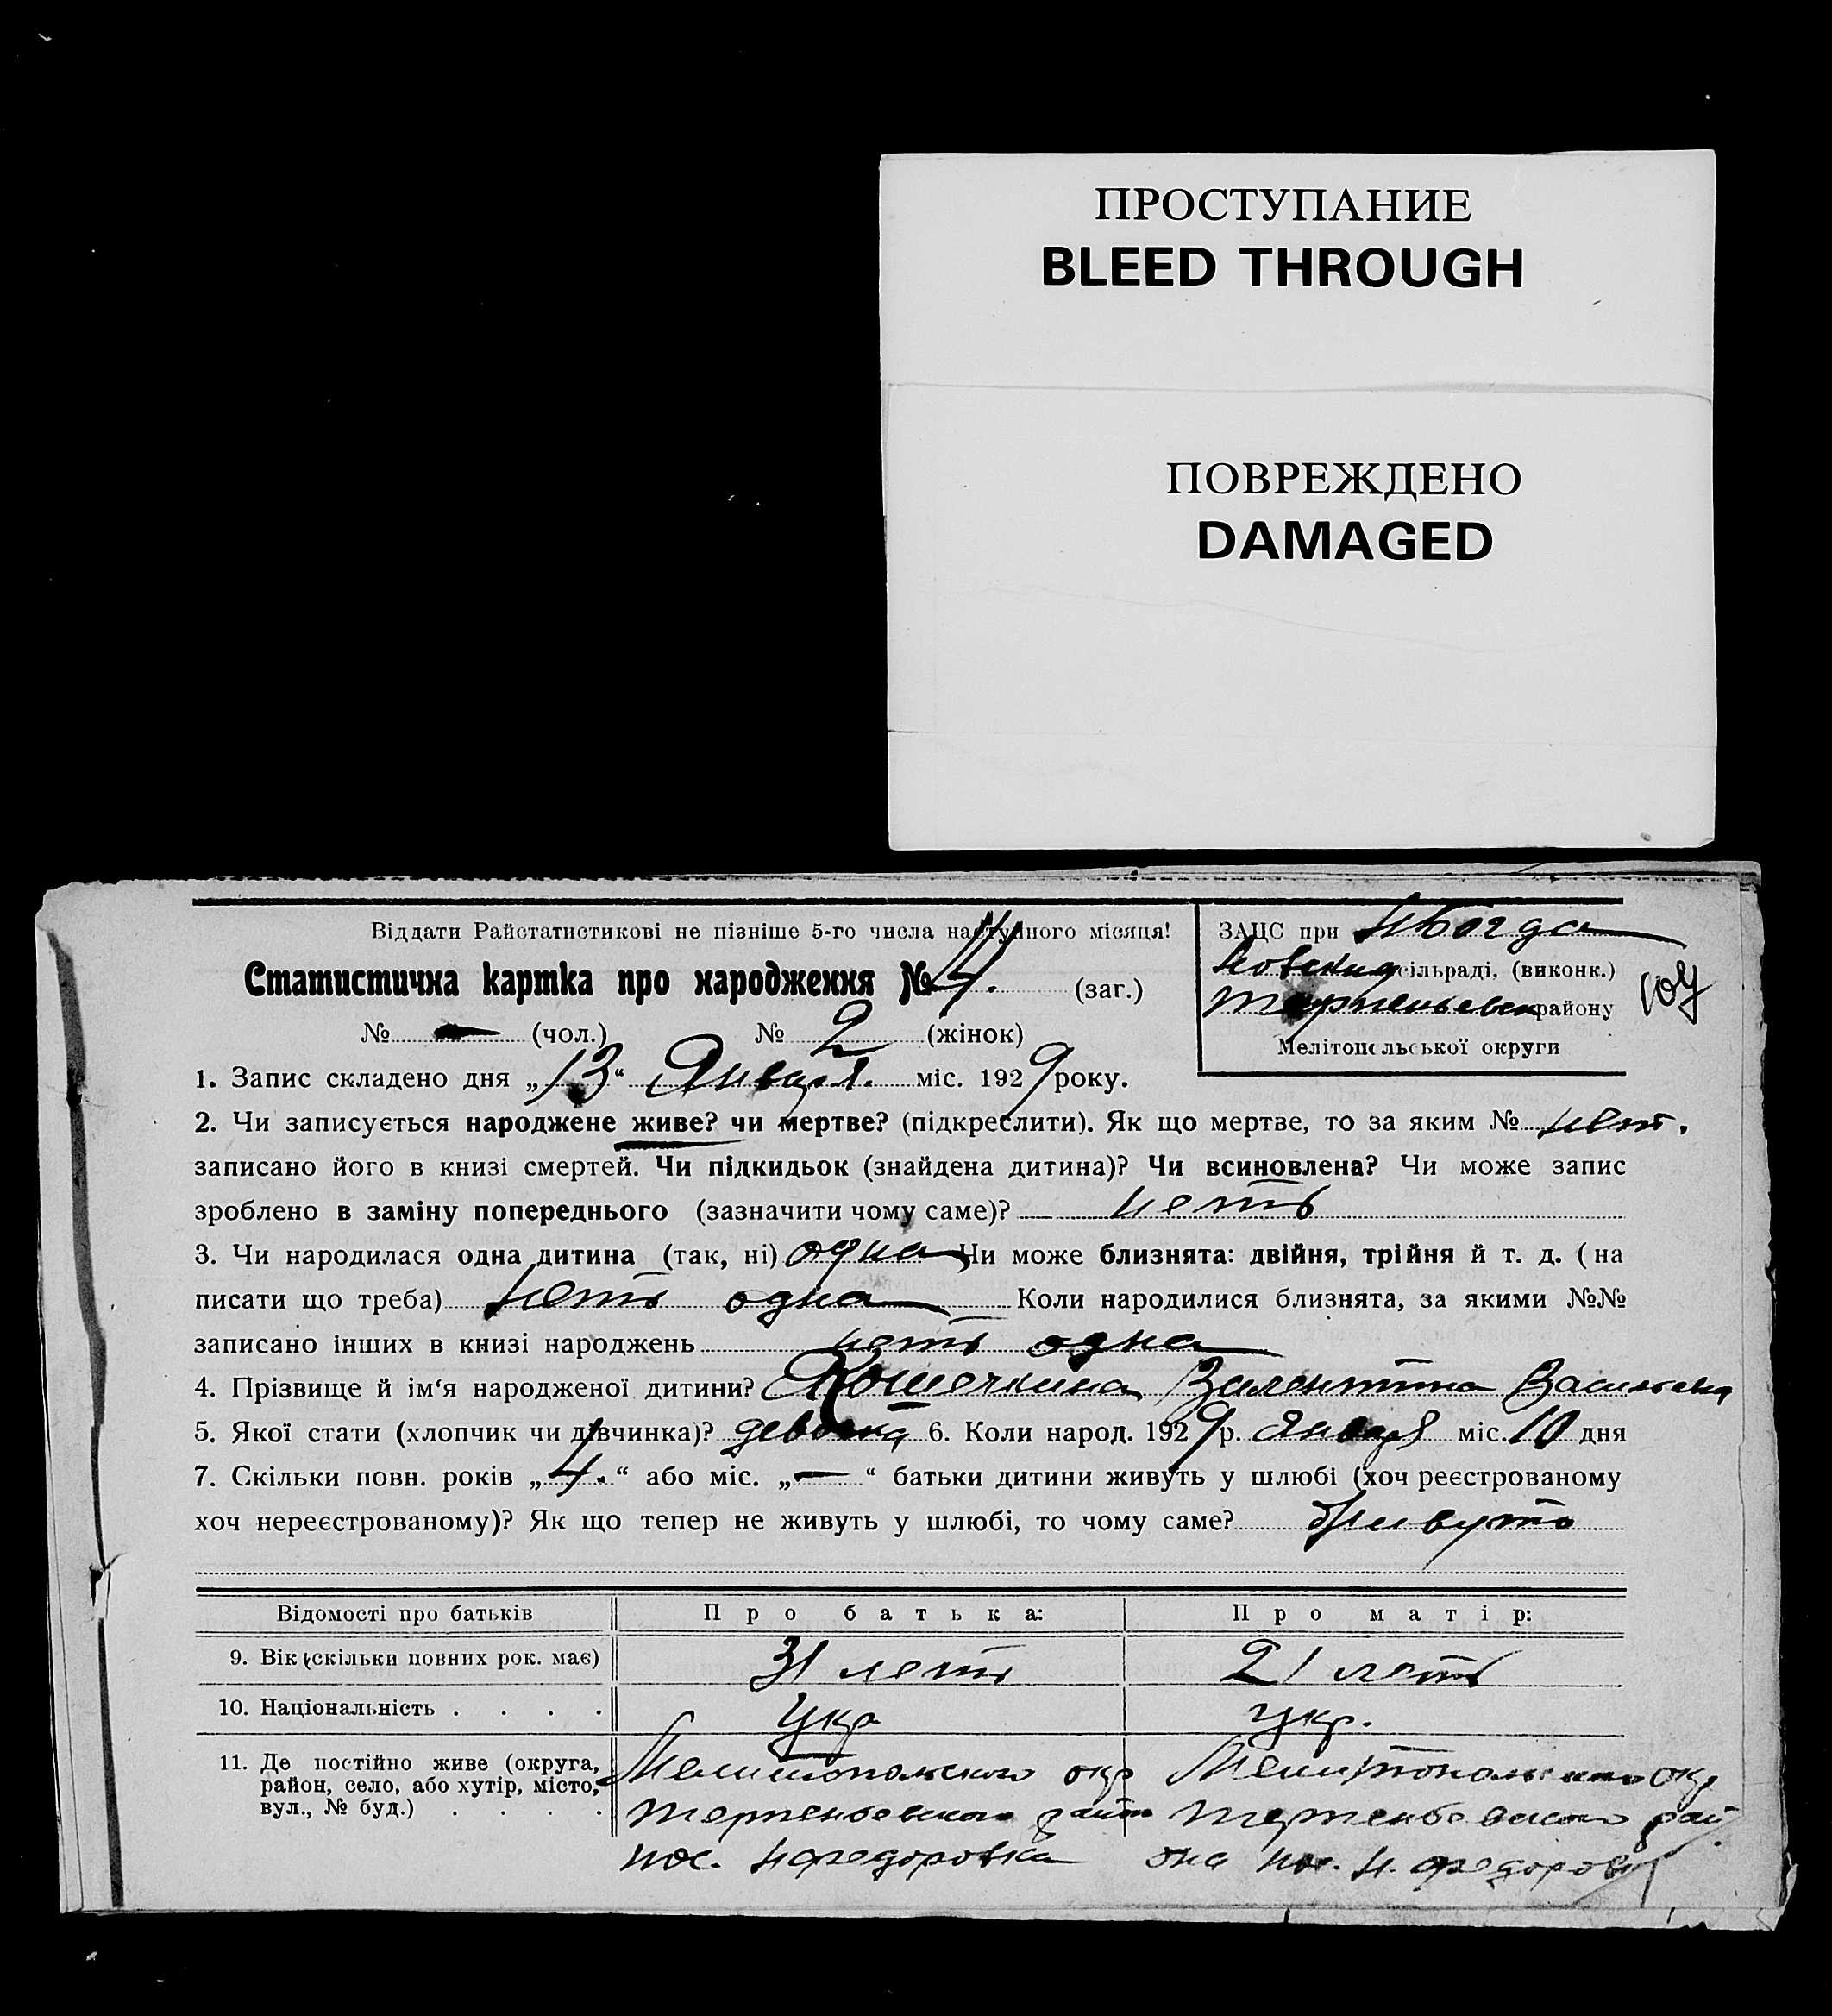 ПРОСТУПАНИЕ
BLEED THROUGH
ПОВРЕЖДЕНО
DAMAGED
Віддати Райстатистикові не пізніше 5-го числа наступного місяця!
ЗАЦС при НБогда
новский сільраді, (виконк.)
району
Мелітопільської округи
Статистична картка про народження № 4. (заг.)
№ — (чол.) № 2 (жінок)
1. Запис складено дня „13“ Января. міс. 1929 року.
2. Чи записується народжене живе? чи мертве? (підкреслити). Як що мертве, то за яким № нет.
записано його в книзі смертей. Чи підкидьок (знайдена дитина)? Чи всиновлена? Чи може запис
зроблено в заміну попереднього (зазначити чому саме)? нетъ
3. Чи народилася одна дитина (так, ні) одна Чи може близнята: двійня, трійня й т. д. (на
писати що треба) нетъ одна Коли народилися близнята, за якими №№
записано інших в книзі народжень нетъ одна
4. Прізвище й ім‘я народженої дитини? Кошечкина Валентина Васильевна
5. Якої стати (хлопчик чи дівчинка)? девочка 6. Коли народ. 1929 р. Января міс. 10 дня
7. Скільки повн. років „4.“ або міс. „—“ батьки дитини живуть у шлюбі (хоч реєстрованому
хоч нереєстрованому)? Як що тепер не живуть у шлюбі, то чому саме? живутъ
Відомості про батьків Про батька: Про матір:
9. Вік (скільки повних рок. має) 31 летъ 21 летъ
10. Національність . . . . Укр Укр.
11. Де постійно живе (округа, Мелитопольского окр Мелитопольского окр
район, село, або хутір, місто,
вул., № буд.) . . . . Терпеньевского район Терпеньевского рай
пос. Нфедоровка она пос. Н. федоровк